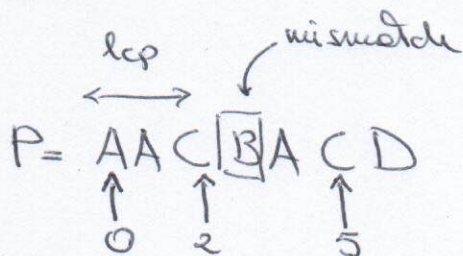 lcp mismatch
P= AAC[B]ACD
0 2 5